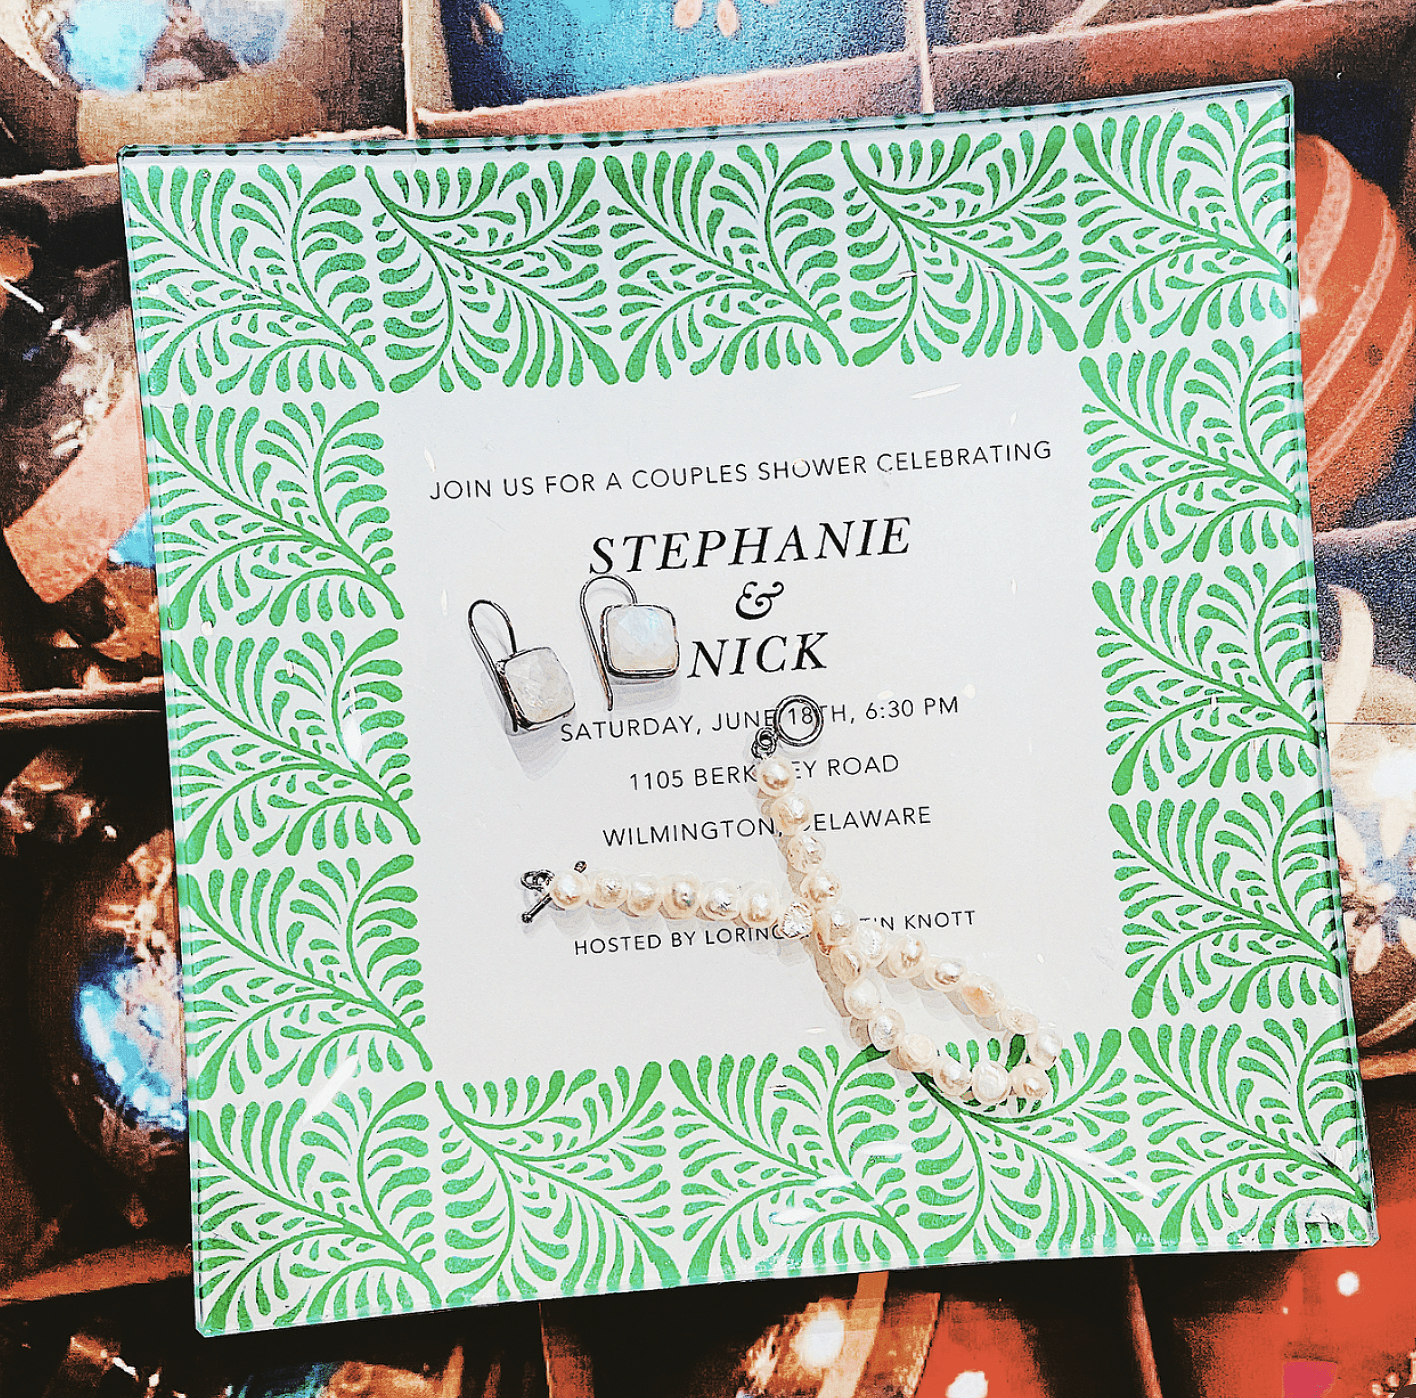 JOIN US FOR A COUPLES SHOWER CELEBRATING
STEPHANIE
&
NICK
SATURDAY, JUNE 18TH, 6:30 PM
1105 ROAD
WILMINGTON, DELAWARE
HOSTED BY KNOTT